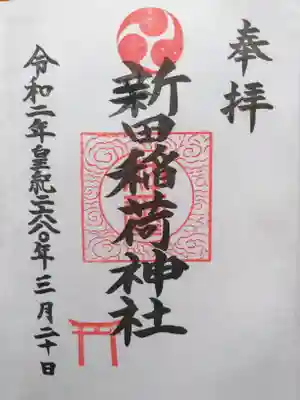 奉拝
新田稲荷神社
令和二年皇紀二六八〇年三月二十日